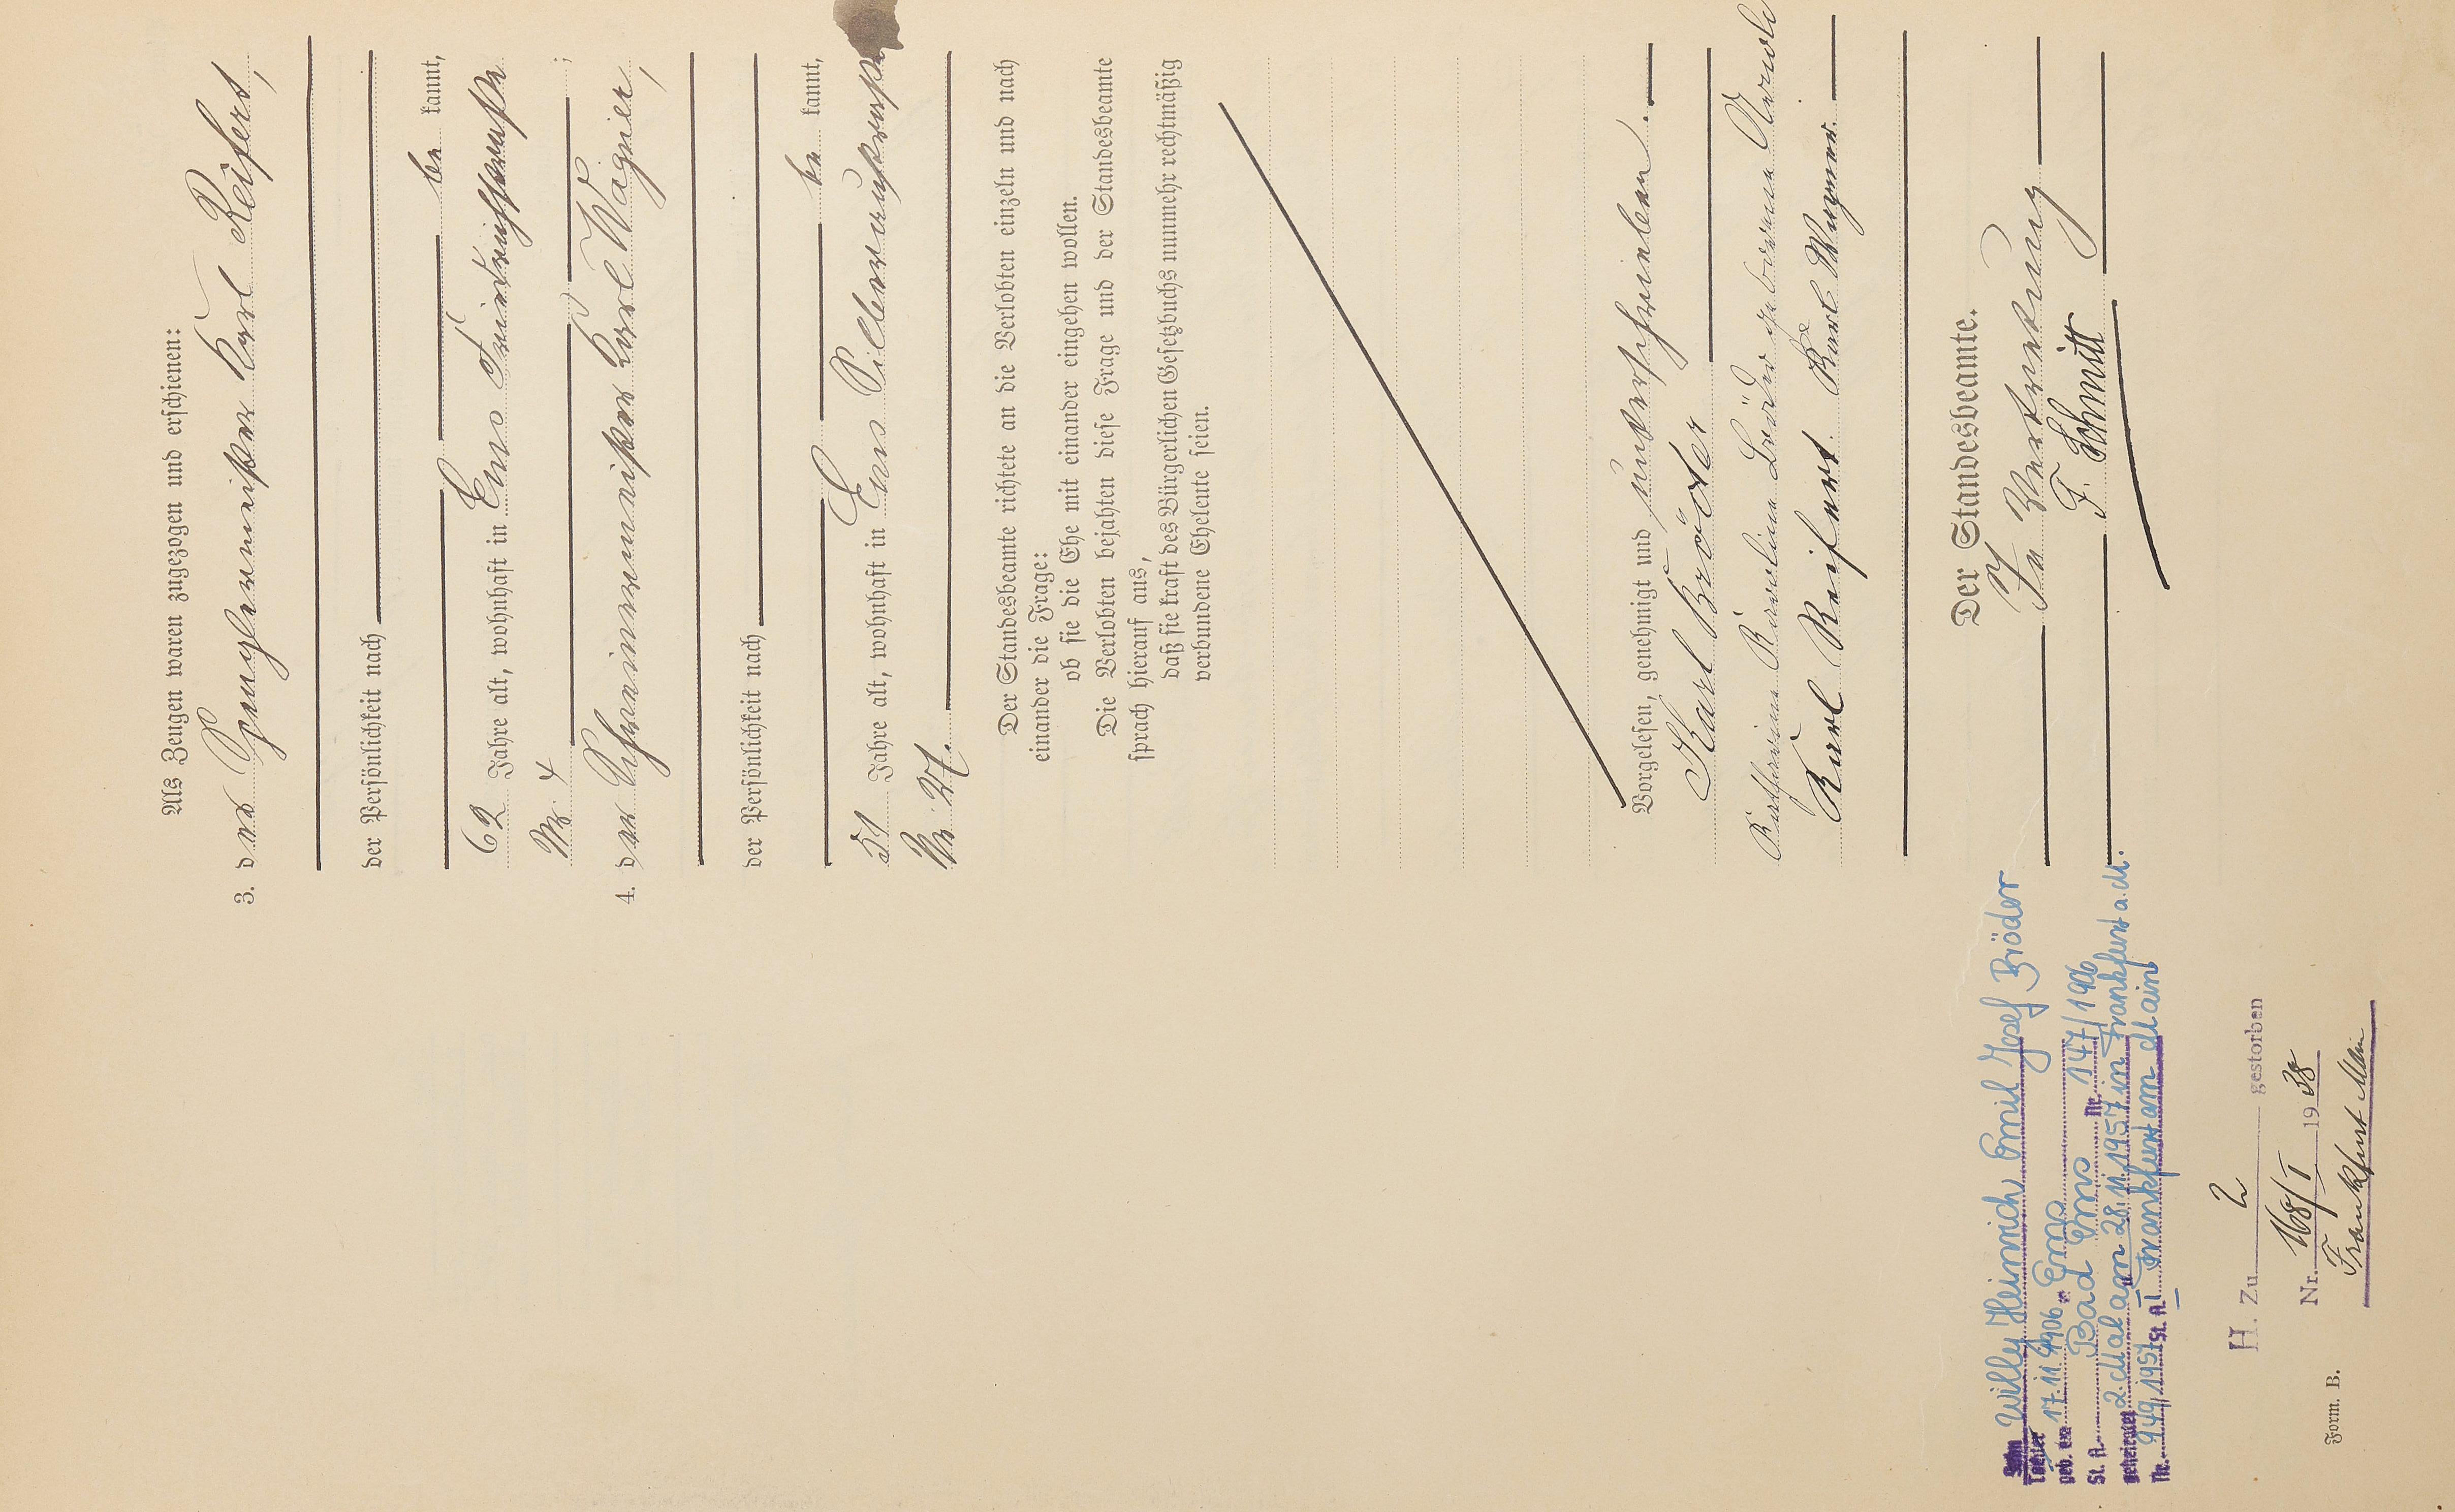 Als Zeugen waren zugezogen und erschienen:
3. der Spenglermeister Karl Reifert,
der Persönlichkeit nach
be kannt,
62 Jahre alt, wohnhaft in Ems Friedrichstraße
Nr. 4 ;
4. der Schreinermeister Karl Wagner,
der Persönlichkeit nach
be kannt,
51 Jahre alt, wohnhaft in Ems Silberaustraße
Nr. 27.
Der Standesbeamte richtete an die Verlobten einzeln und nach
einander die Frage:
ob sie die Ehe mit einander eingehen wollen.
Die Verlobten bejahten diese Frage und der Standesbeamte
sprach hierauf aus,
daß sie kraft des Bürgerlichen Gesetzbuchs nunmehr rechtmäßig
verbundene Eheleute seien.
Vorgelesen, genehmigt und unterschrieben.
Karl Bröder
Katharina Karolina Bröder geborene
Karl Reifert. Karl Wagner.
Der Standesbeamte.
In Vertretung
F. Schmitt
Sohn Willy Heinrich Emil Josef Bröder
Tochter
geb. am 17.11.1906 in Ems
St. A. Bad Ems Nr. 147/1906
geheiratet 2. Mal am 28.11.1957 in Frankfurt a.M.
Nr. 949/1957 St. A. I Frankfurt am Main
H. Zu 2 gestorben
Nr. 168/I 1938
Frankfurt Main
Form. B.